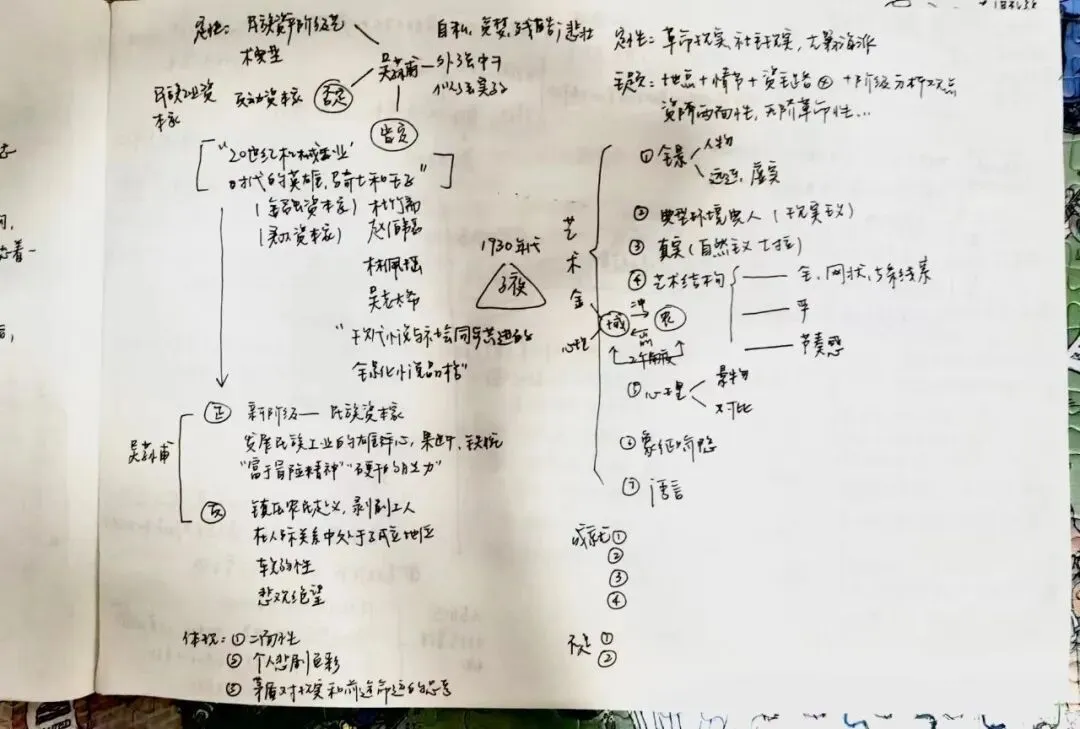 定性：民族资产阶级艺
术典型
吴荪甫
自私、贪婪、残酷；悲壮
外强中干
否定
皆实
民族工业资
本家
反动资本家
"20世纪机械工业
时代的英雄、骑士和王子"
（金融资本家）杜竹斋
（买办资本家）赵伯韬
林佩瑶
吴老太爷
"
全景化小说品格"
吴荪甫
正
新阶级——民族资本家
发展民族工业的雄心，果断、铁腕
"富于冒险精神""硬干的胆力"
反
镇压农民起义，剥削工人
在人际关系中处于孤立地位
软弱性
悲观绝望
体现：①二面性
②个人悲剧色彩
③茅盾对现实和前途命运的思考
1930年代
子夜
定性：革命现实、社会现实，
主题：地点+情节+资主路 +阶级分析观点
资阶两面性，无阶革命性…
艺术
①全景
人物
远近、虚实
②典型环境典人（现实主义）
③真实（自然主义 左拉）
④艺术结构
全、网状、5条线索
平
节奏感
城
农
⑤心理
景物
对比
⑥象征
⑦语言
成就①
②
③
④
不足①
②